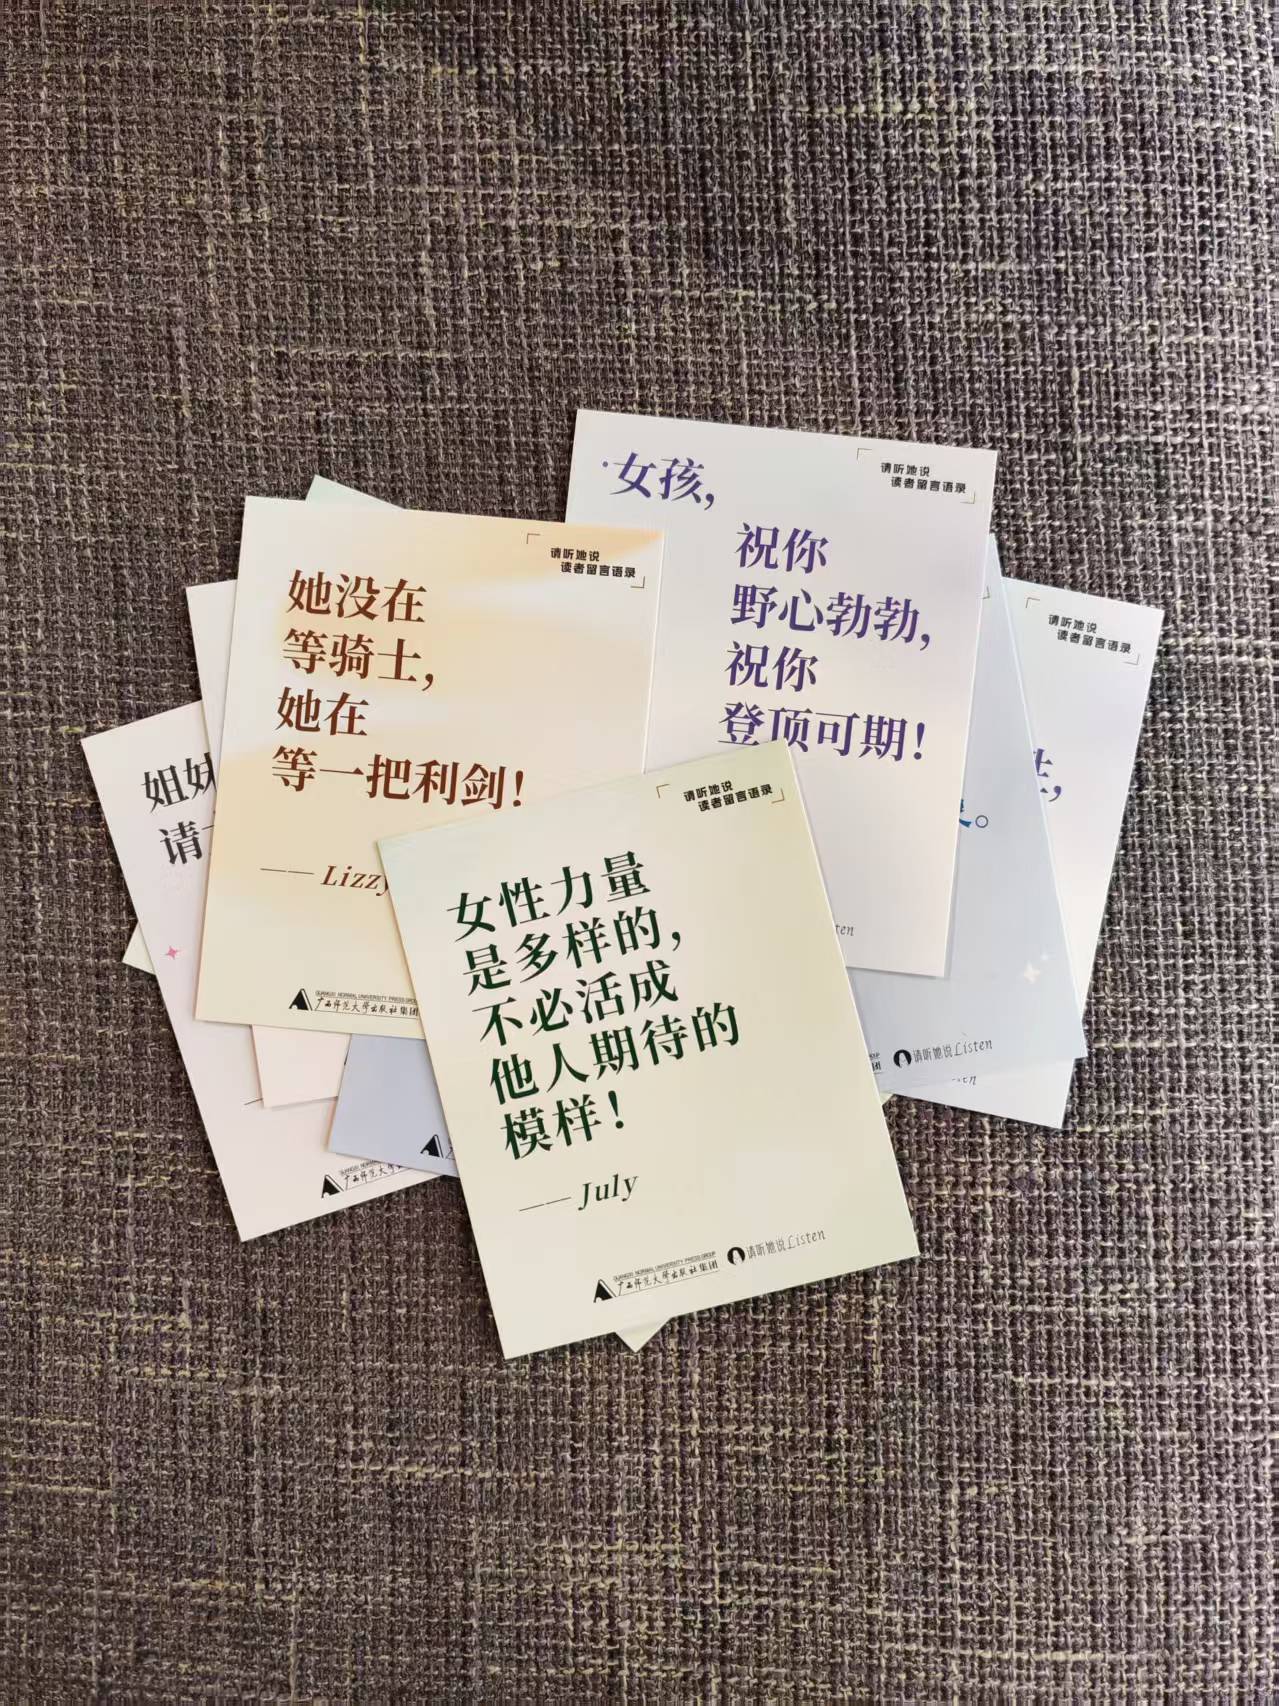 女孩,
祝你
野心勃勃,
祝你
登顶可期!
请听她说
读者留言语录
她没在
等骑士,
她在
等一把利剑!
—— Lizzy
请听她说
读者留言语录
GUANGXI NORMAL UNIVERSITY PRESS GROUP
广西师范大学出版社集团
女性力量
是多样的,
不必活成
他人期待的
模样!
—— July
请听她说
读者留言语录
GUANGXI NORMAL UNIVERSITY PRESS GROUP
广西师范大学出版社集团
请听她说Listen
姐妹
请
广西师范大学出版社集
请听她说
读者留言语录
请听她说Listen